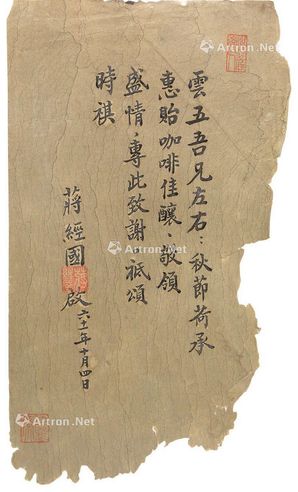 雲五吾兄左右：秋節荷承
惠貽咖啡佳釀、敬領
盛情，專此致謝，祗頌
時祺
蔣經國 啟 六十一年十月四日
Artron.Net
Artron.Net
Artron.Net
Artron.Net